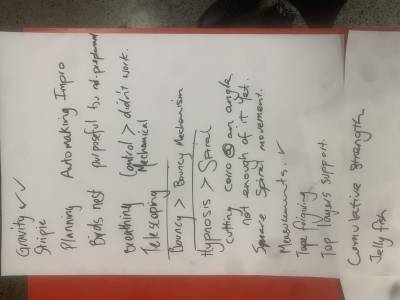 Gravity ✓✓
Stripie
Planning Automaking Impro
Birds nest purposeful b, not-prepared
breathing Control > didn't work.
Telescoping Mechanical
Bouncy > Bouncy Mechanism
Hypnosis > Spiral
cutting corro @ an angle
not enough of it yet.
Square spiral movement.
Measurements. ✓
Tape figuring
Top layers support.
Cumulative strength
Jelly fish